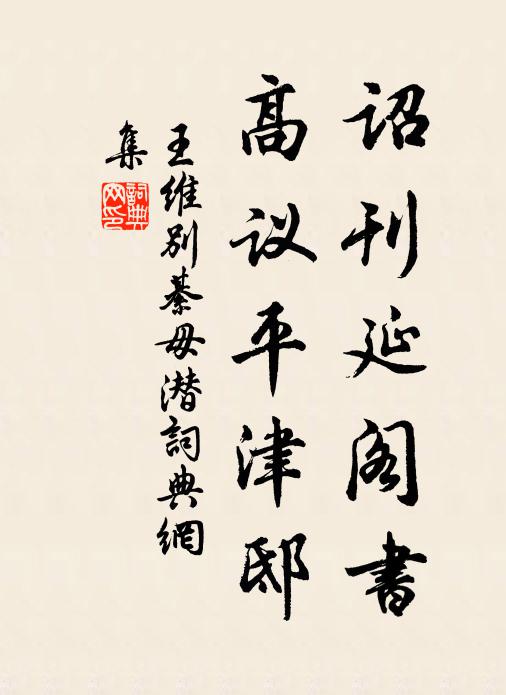 詔刊延阁書
高议平津邸
王維别綦毋潜詞典網
集
詞典网印